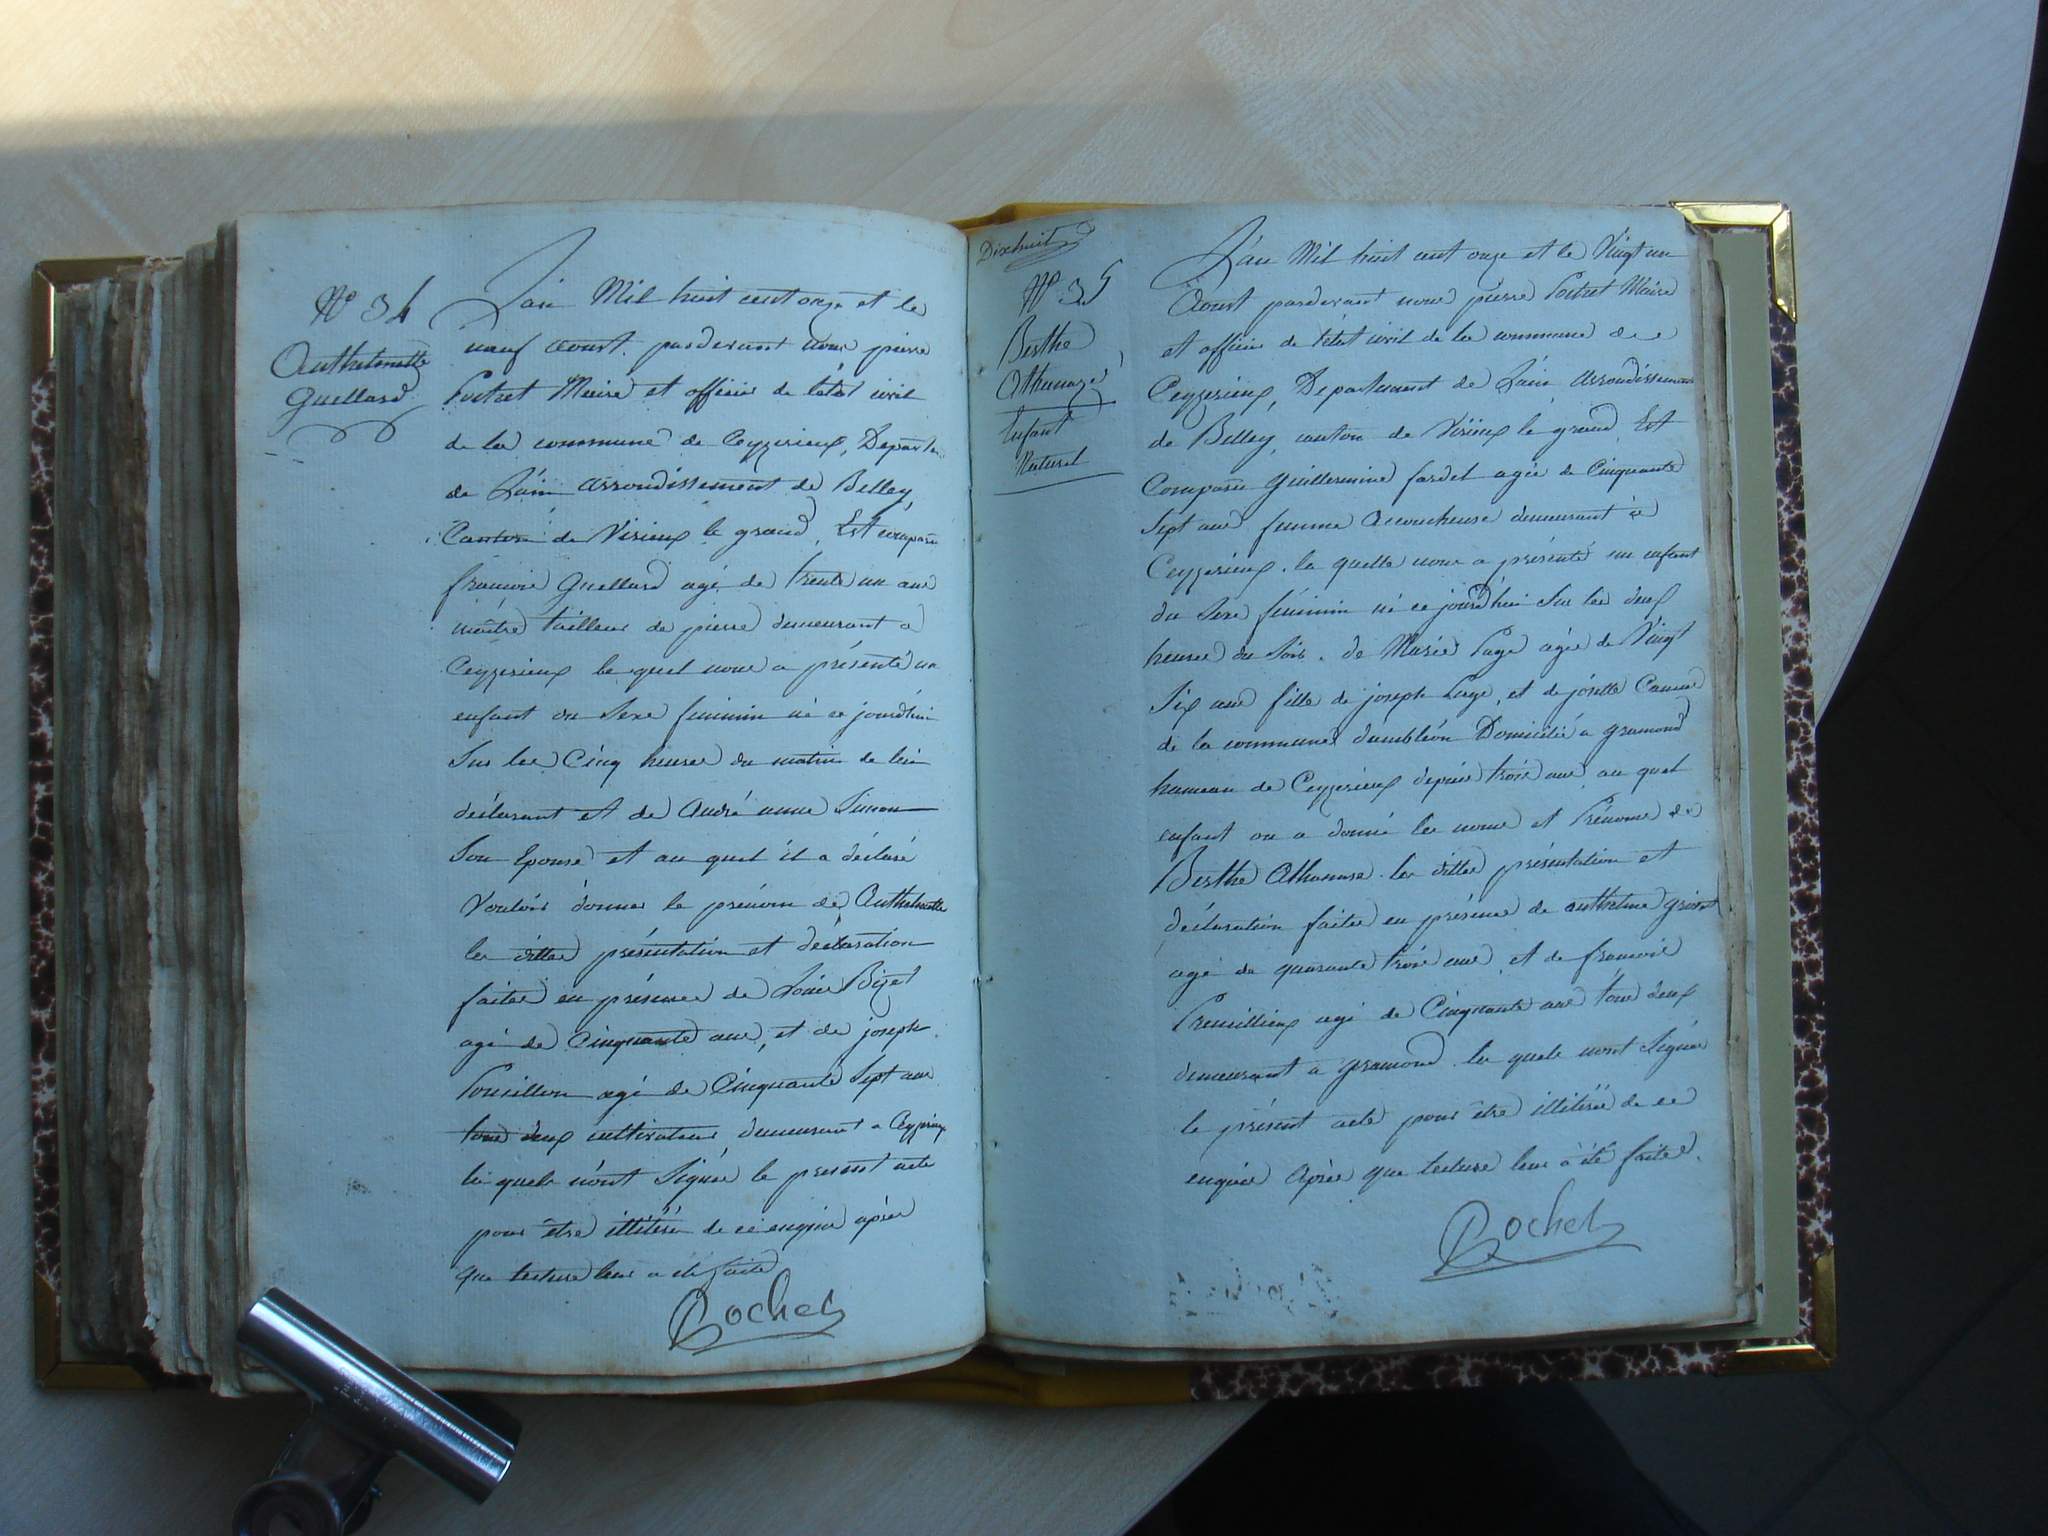 N° 34
Anthelmette
Guellard
L'an Mil huit cent onze et le
neuf aoust. pardevant nous pierre
Maire et officier de l'état civil
de la commune de Ceyzerieux, Departt
de L'ain arrondissement de Belley,
Canton de Virieux le grand, Est comparu
francois Guellard agé de trente un ans
maître tailleur de pierre demeurant a
Ceyzerieux le quel nous a présenté un
enfant du Sexe feminin né ce jourdhui
Sur les Cinq heures du matin de lui
déclarant et de André anne Simon
Son Epouse et au quel il a déclaré
Vouloir donner le prénom de Anthelmette
les dittes présentation et déclaration
faites en présence de Louis Bizet
agé de Cinquante ans, et de joseph
agé de Cinquante Sept ans
tous deux cultivateurs demeurant a Ceyzerieux
les quels n'ont Signés le présent acte
pour être illitérés de ce enquis après
que lecture leur a été faite
Rochet
Dixhuit
N° 35
Berthe
Athanaze
Enfant
Naturel
L'an Mil huit cent onze et le Vingt un
Aoust pardevant nous pierre Maire
et officier de l'état civil de la commune de
Ceyzerieux, Departement de L'ain arrondissement
de Belley, canton de Virieux le grand Est
Comparu Guillermine fardel agée de Cinquante
Sept ans femme Accoucheuse demeurant à
Ceyzerieux. la quelle nous a présenté un enfant
du Sexe féminin né ce jourdhui Sur les deux
heures du Soir. de Marie Page agée de Vingt
Six ans fille de joseph Page, et de josette
de la commune dambléon Domicilié a gramond
hameau de Ceyzerieux depuis trois ans au quel
enfant on a donné les noms et Prénoms de
Berthe Athanase. les dittes présentation et
déclaration faites en présence de anthelme
agé de quarante trois ans et de francois
agé de Cinquante ans tous deux
demeurant a gramond. les quels n'ont Signés
le présent acte pour être illitérés de ce
enquis Après que lecture leur a été faite.
Rochet